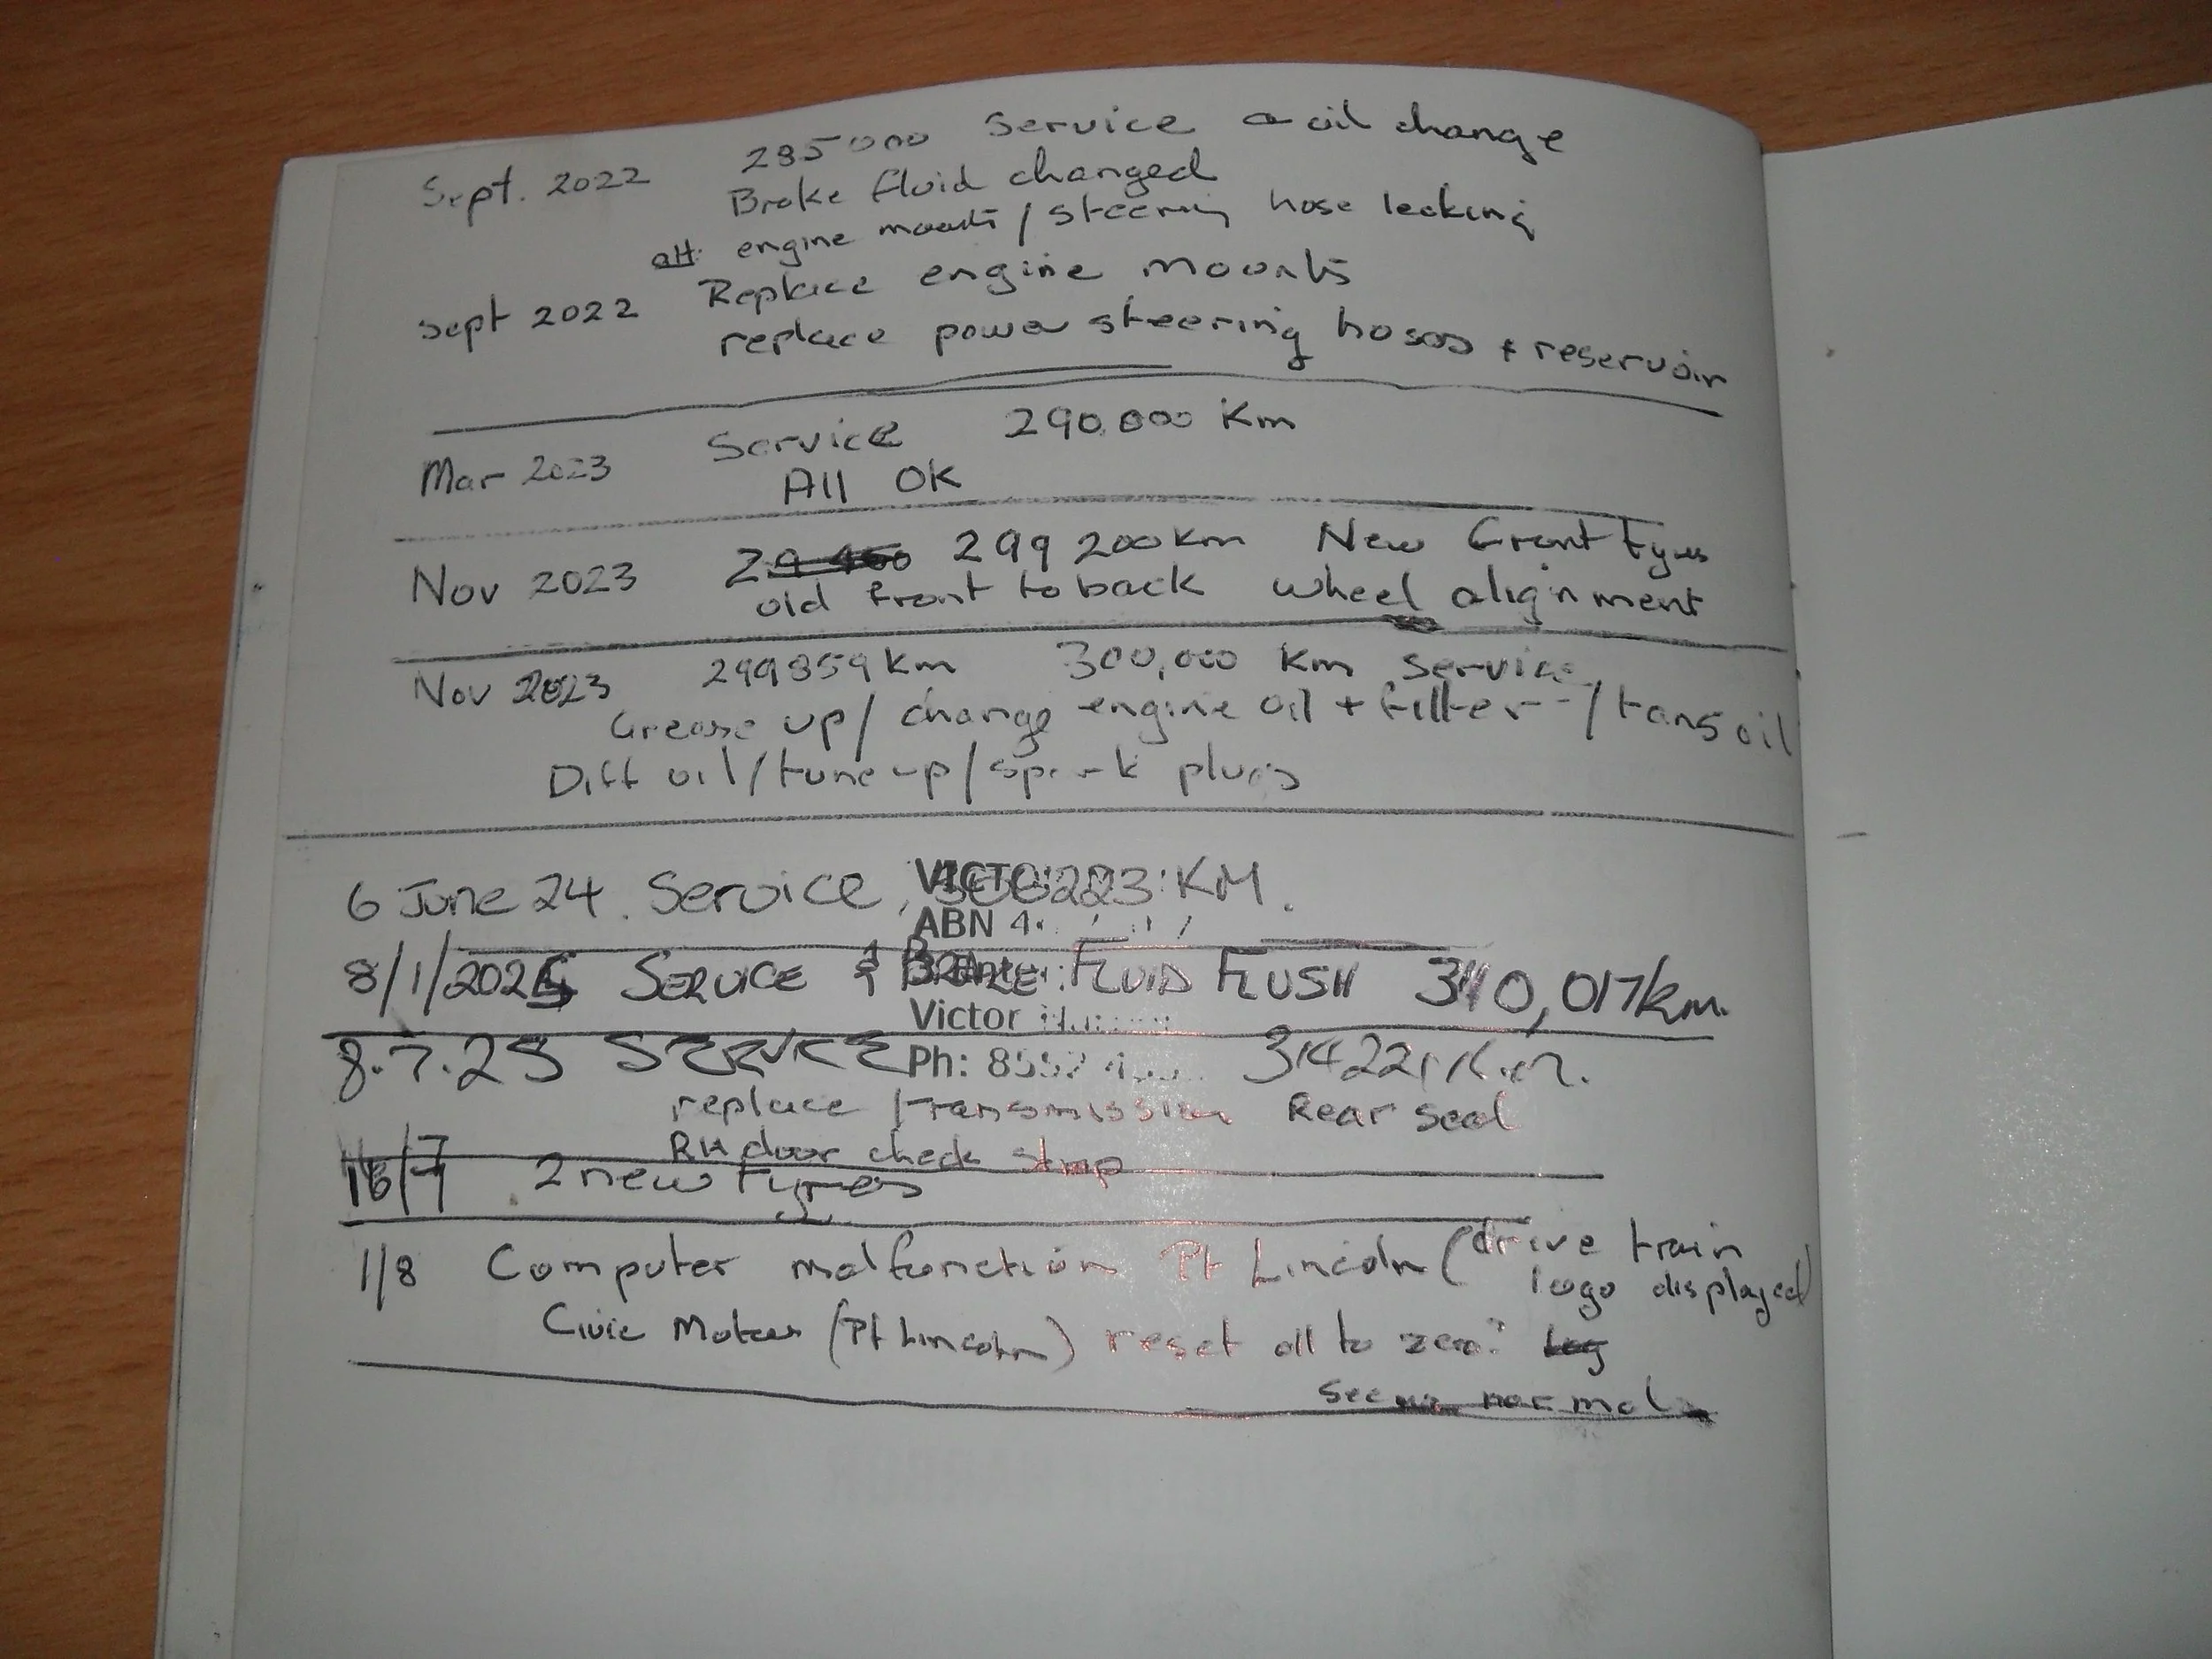 Sept. 2022 285000 Service & oil change
Brake fluid changed
engine mounts / steering hose leaking
Sept 2022 Replace engine mounts
replace power steering hoses + reservoir
Mar 2023 Service 290,000 Km
All OK
Nov 2023 299 200km New front tyres
old front to back wheel alignment
Nov 2023 299859km 300,000 Km service
Grease up / change engine oil + filter / trans oil
Diff oil / tune up / spark plugs
6 June 24. Service, KM.
ABN
8/1/2025 SERVICE & BRAKE FLUID FLUSH 310,017km.
Victor
8.7.25 SERVICE 314221 K.m.
Ph:
replace transmission Rear seal
RH door check strap
16/7 2 new tyres
1/8 Computer malfunction Pt Lincoln (drive train
logo displayed)
Civic Motors (Pt Lincoln) reset all to zero?
Seems normal